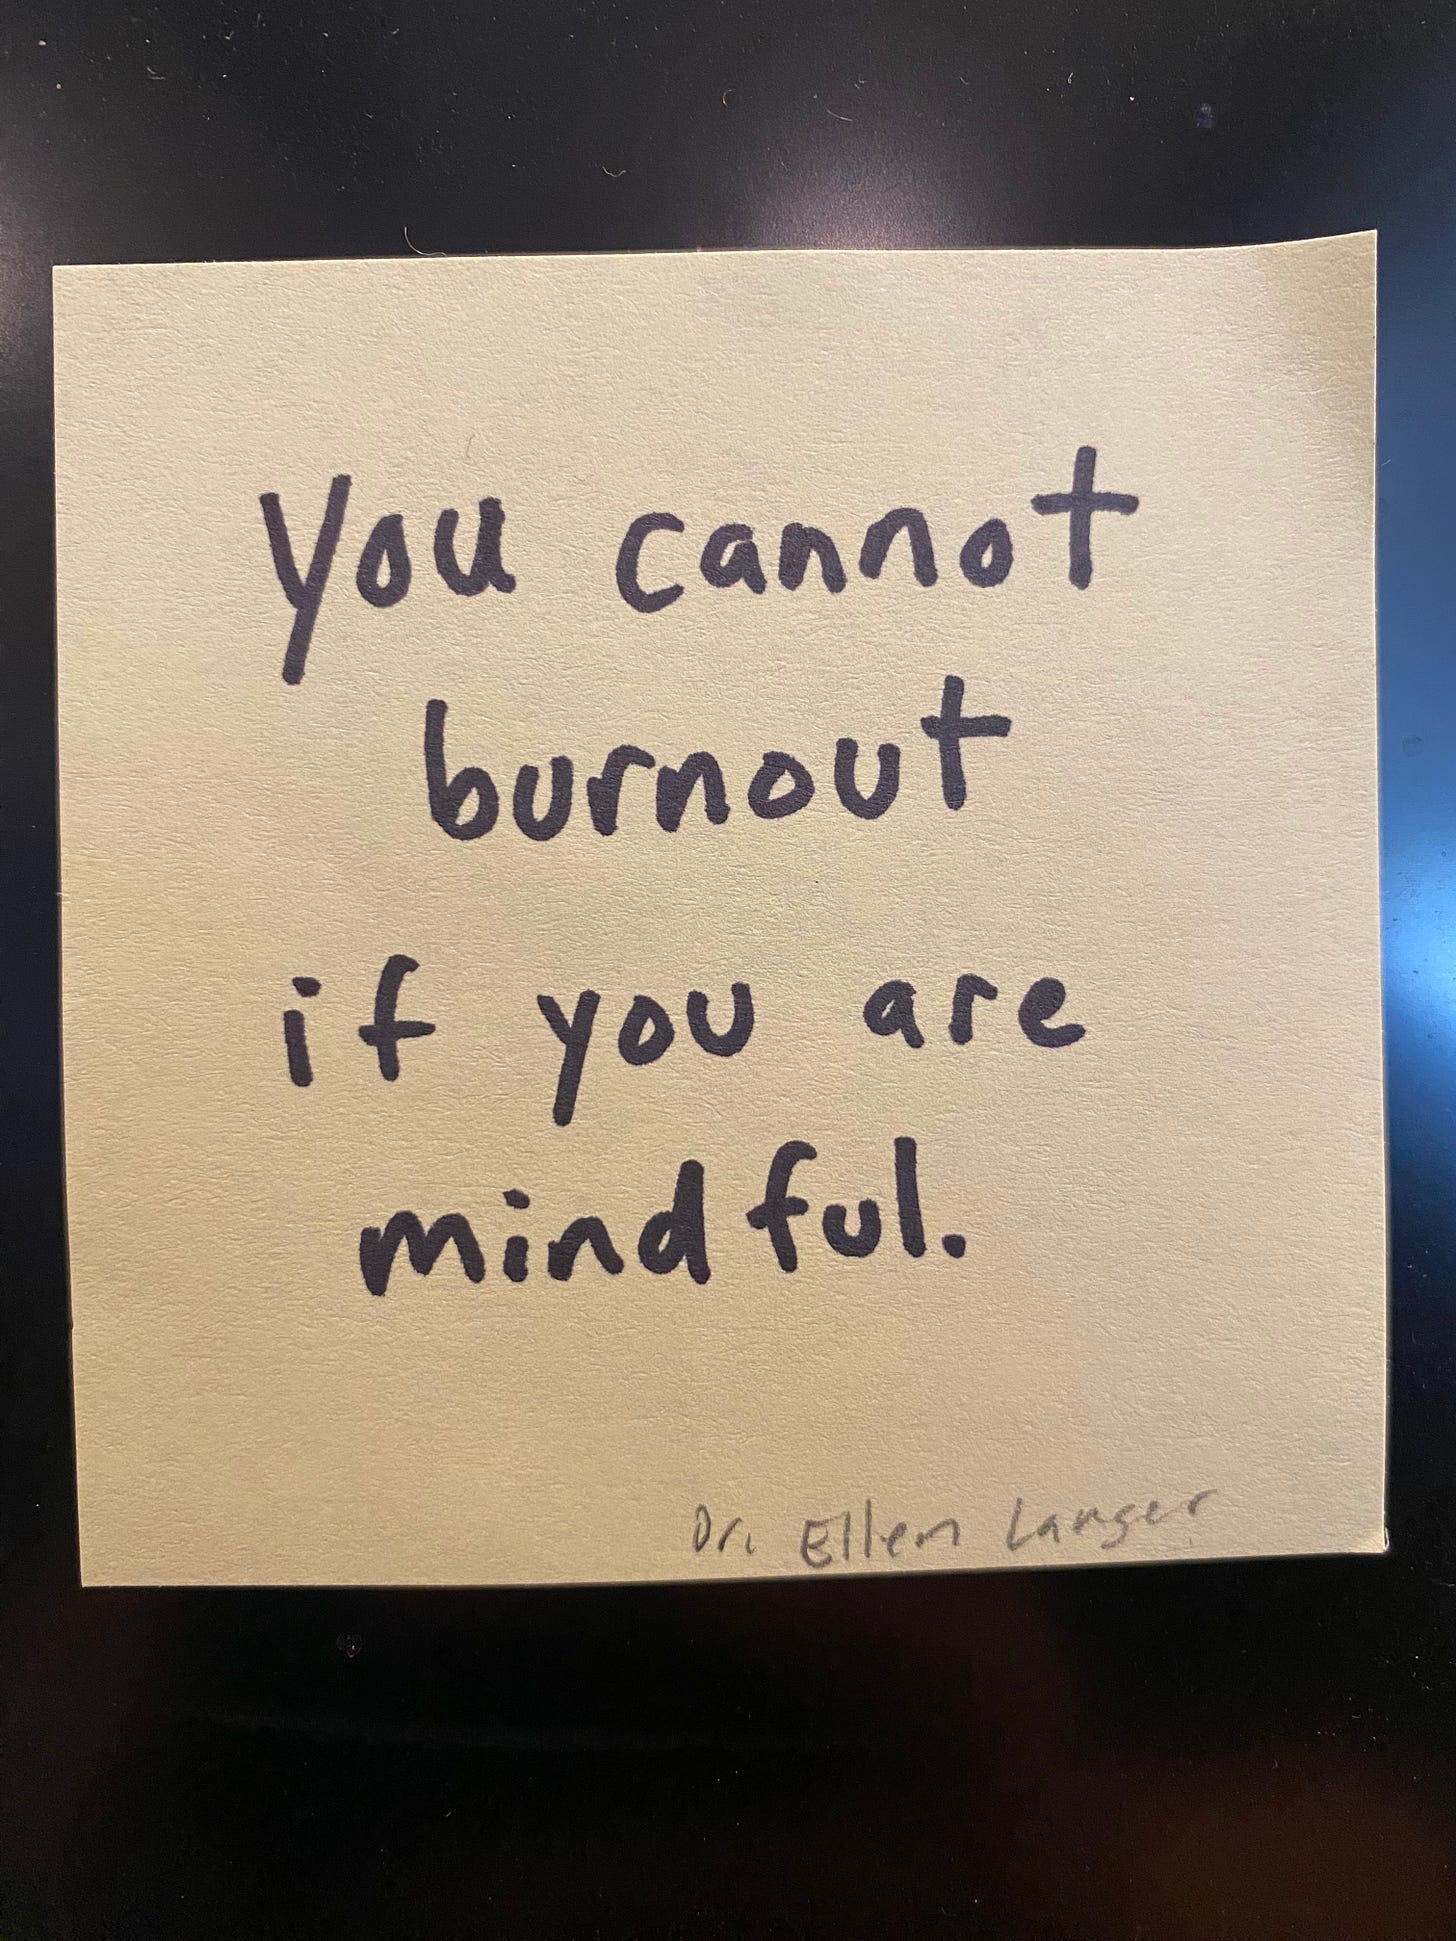 you cannot
burnout
if you are
mindful.
Dr. Ellen Langer